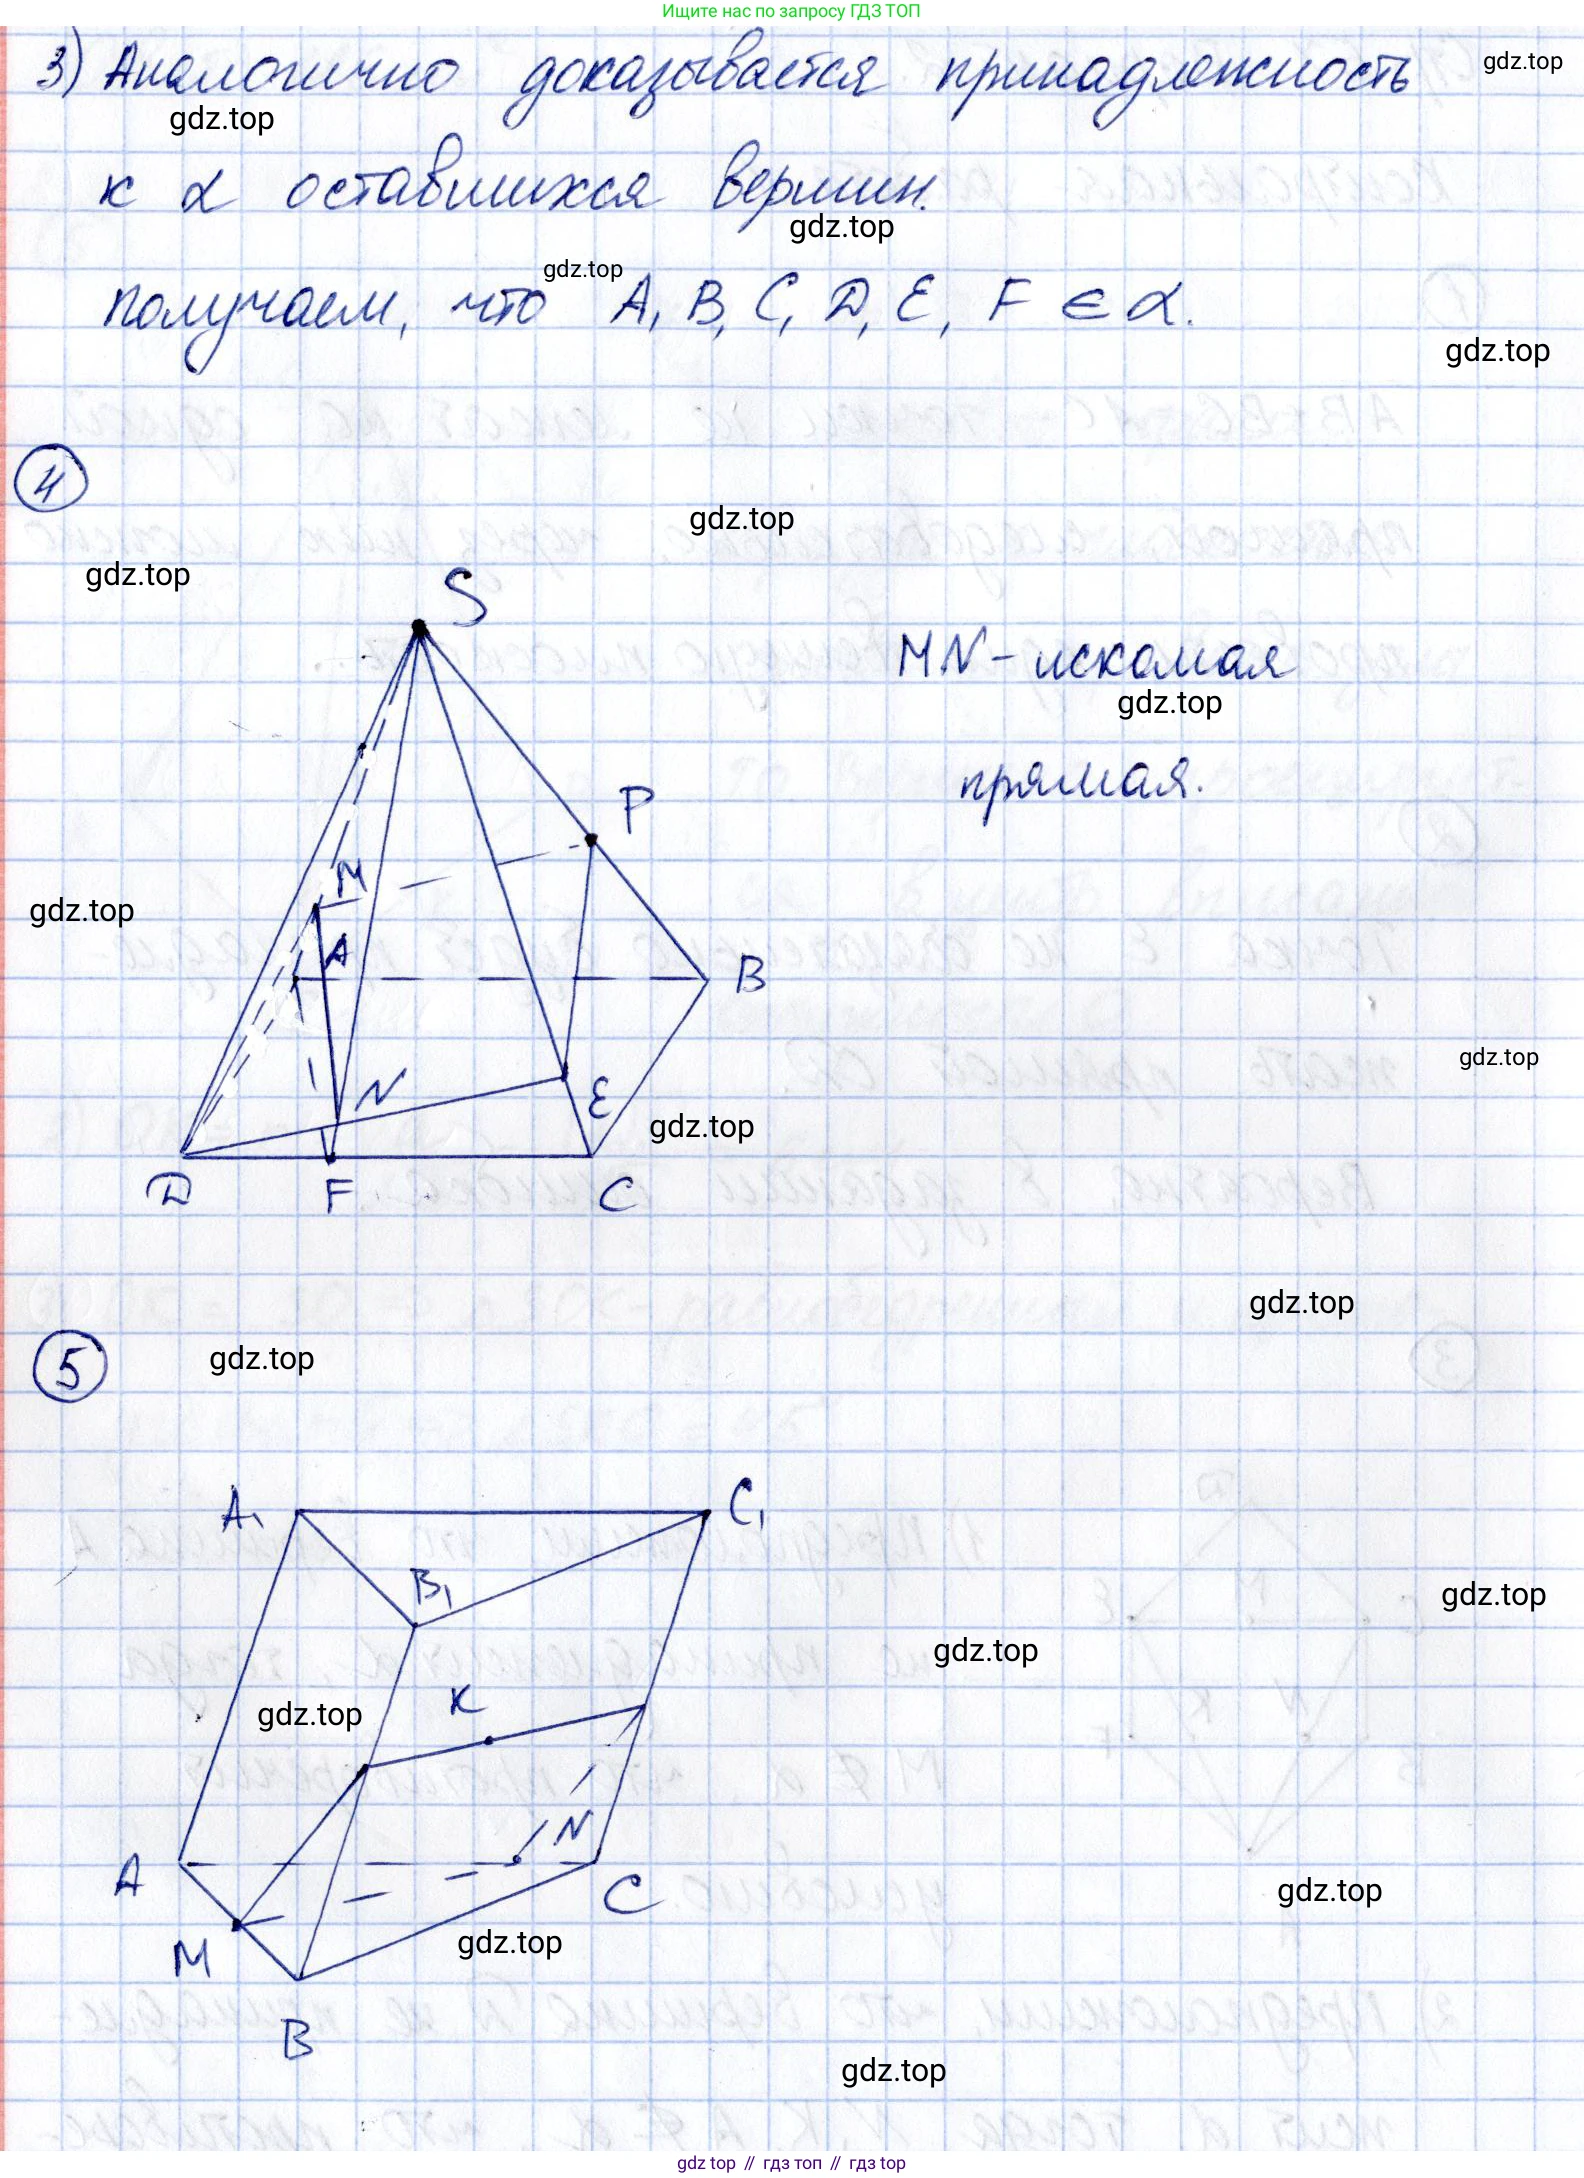 Ищите нас по запросу ГДЗ ТОП
3) Аналогично доказывается принадлежность
gdz.top
gdz.top
к α оставшихся вершин.
gdz.top
gdz.top
получаем, что A, B, C, D, E, F ∈ α.
gdz.top
4
gdz.top
gdz.top
S
MN - искомая
gdz.top
прямая.
P
M
gdz.top
A
B
gdz.top
N
E
gdz.top
D
F
C
gdz.top
5
gdz.top
A₁
C₁
B₁
gdz.top
gdz.top
K
gdz.top
N
A
C
gdz.top
M
gdz.top
B
gdz.top
gdz top // гдз топ // gdz top